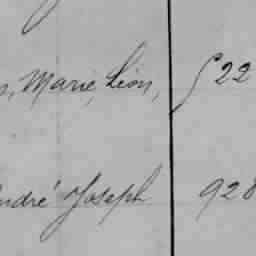 Marie, Léon, 522
André Joseph 928